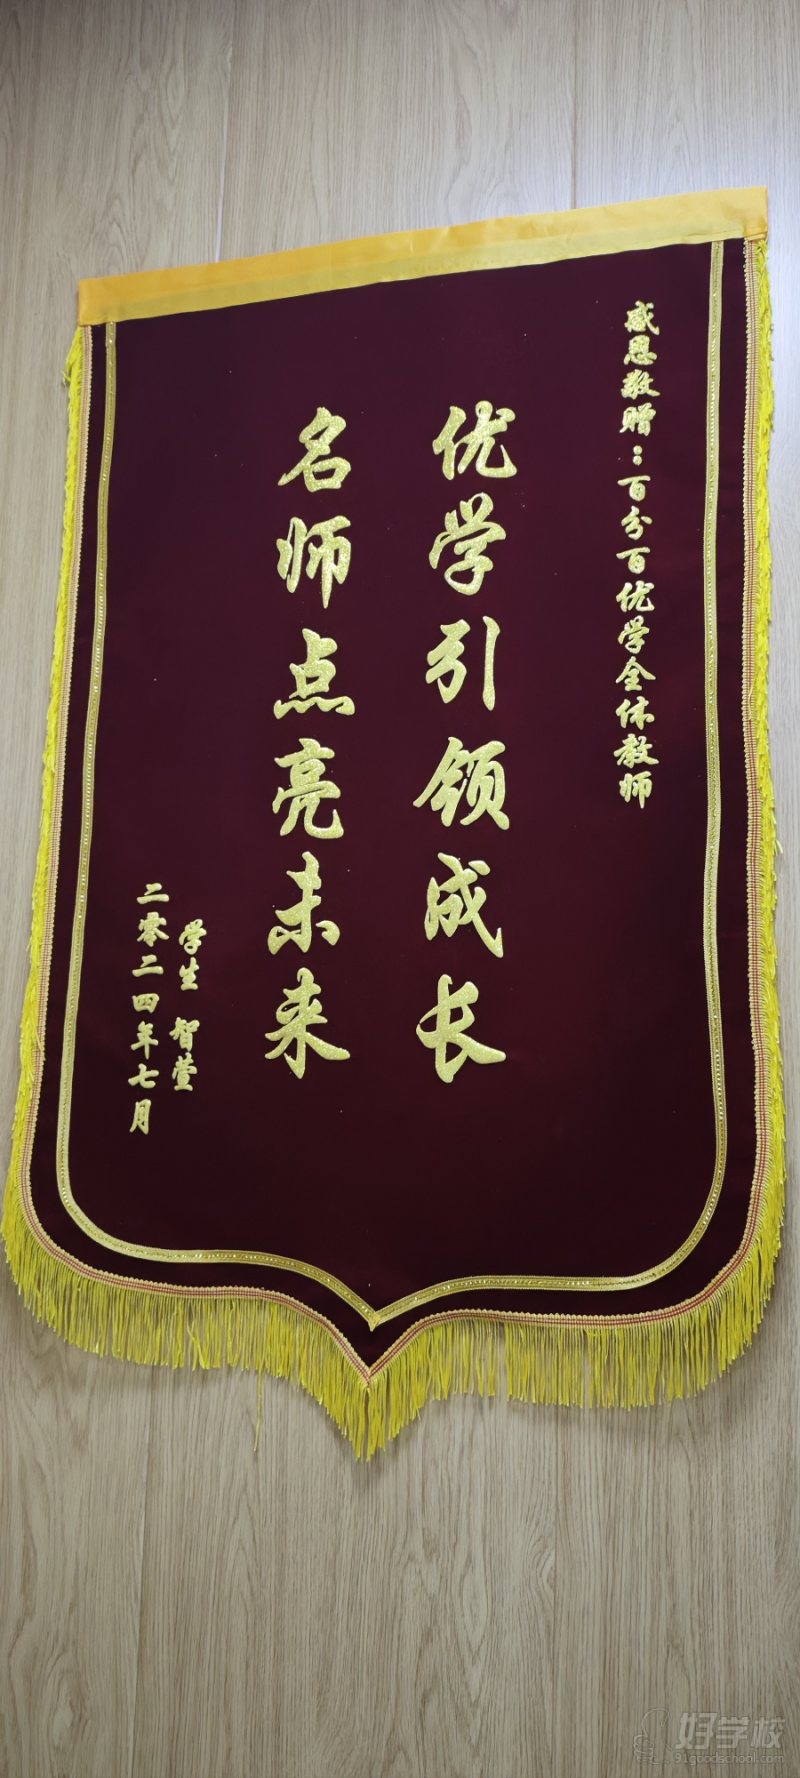 感恩敬赠：百分百优学全体教师
优学引领成长
名师点亮未来
学生 智萱
二零二四年七月
好学校
91goodschool.com